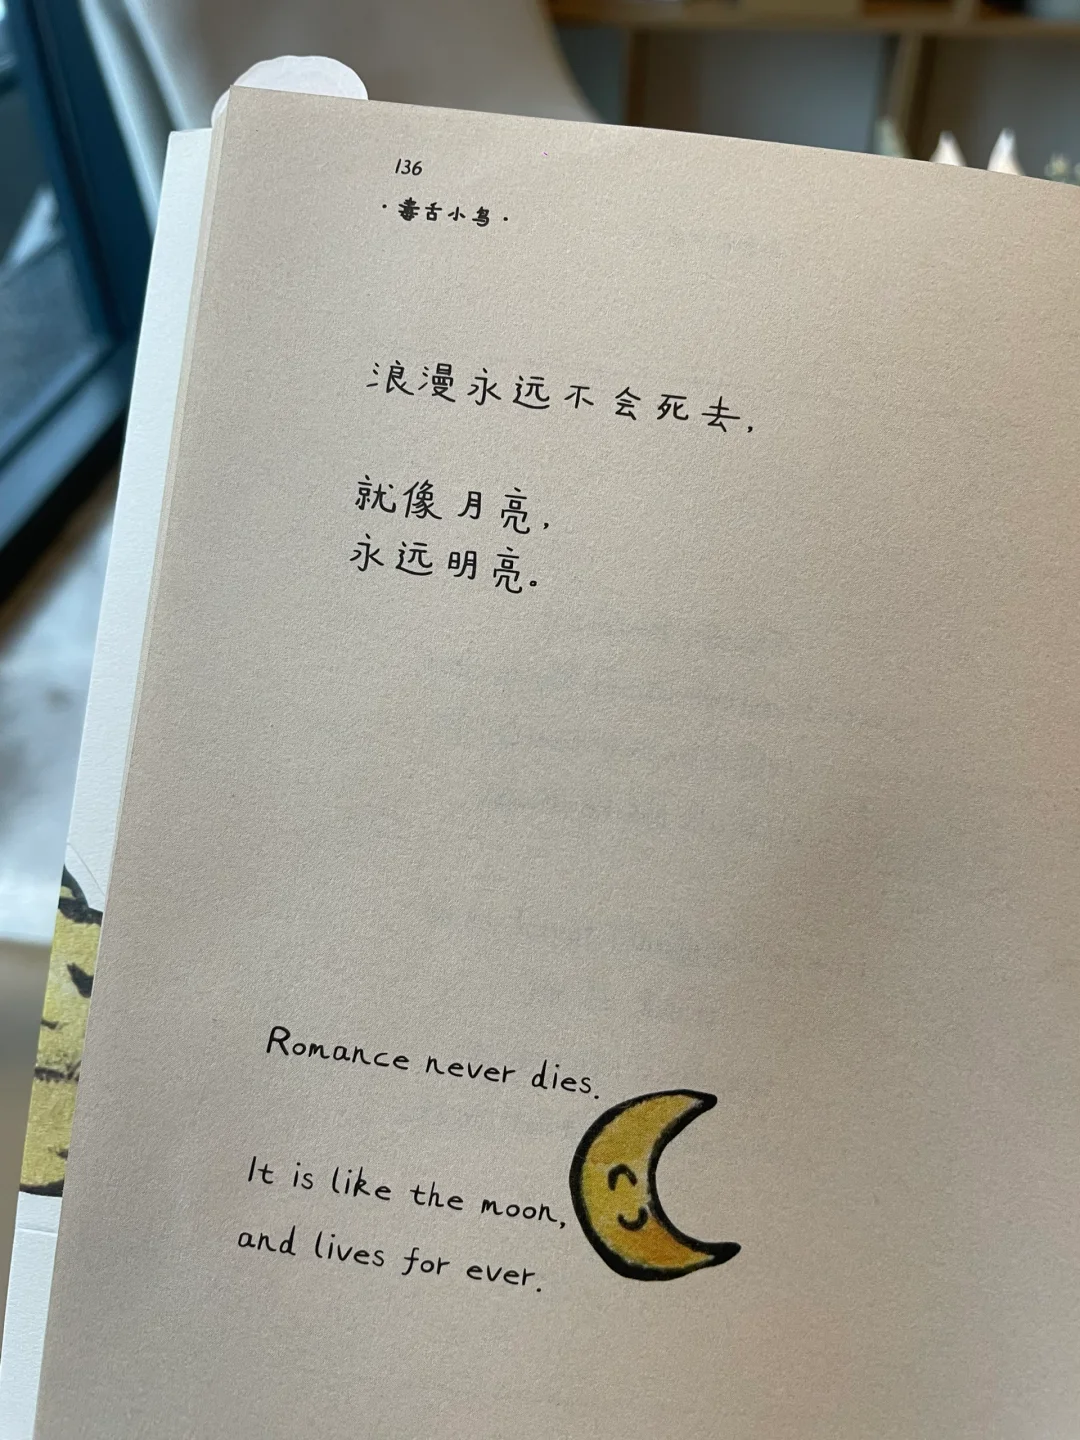 136
·毒舌小鸟·
浪漫永远不会死去，
就像月亮，
永远明亮。
Romance never dies.
It is like the moon,
and lives for ever.